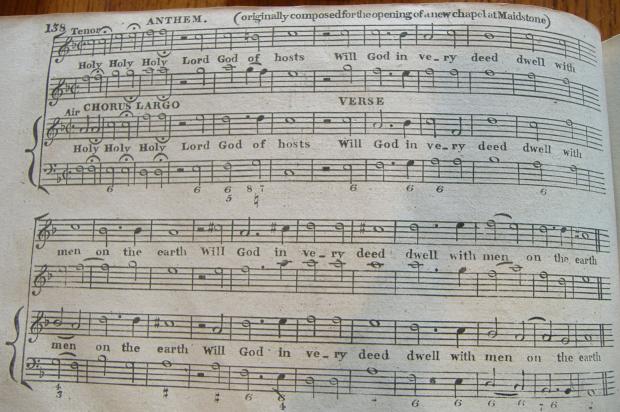 138 ANTHEM. (originally composed for the opening of a new chapel at Maidstone)
Tenor
Holy Holy Holy Lord God of hosts Will God in ve-ry deed dwell with
Air CHORUS LARGO VERSE
Holy Holy Holy Lord God of hosts Will God in ve-ry deed dwell with
6 6 8 7 6 6 6 6
5
men on the earth Will God in ve-ry deed dwell with men on the earth
men on the earth Will God in ve-ry deed dwell with men on the earth